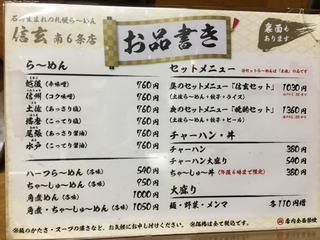 石狩生まれの札幌らーめん
信玄 南6条店
お品書き
裏面も
あります
らーめん
越後(辛味噌) 760円
信州(コク味噌) 760円
土佐(あっさり塩) 760円
播磨(こってり塩) 760円
尾張(あっさり醤油) 760円
水戸(こってり醤油) 760円
ハーフらーめん(各味) 540円
ちゃーしゅーめん(各味) 950円
角煮めん(各味) 1000円
角煮・ちゃーしゅーめん(各味) 1050円
セットメニュー
昼のセットメニュー「信玄セット」 1030円
(土佐らーめん・餃子・ライス)
夜のセットメニュー「晩酌セット」 1360円
チャーハン・丼
チャーハン 380円
チャーハン大盛り 540円
ちゃーしゅー丼(午後6時まで限定) 380円
大盛り
麺・野菜・メンマ 各110円増
※麺のかたさ・スープの濃さなど、お気軽にお申し付けください。 ※価格は全て税込です。
店内全面禁煙